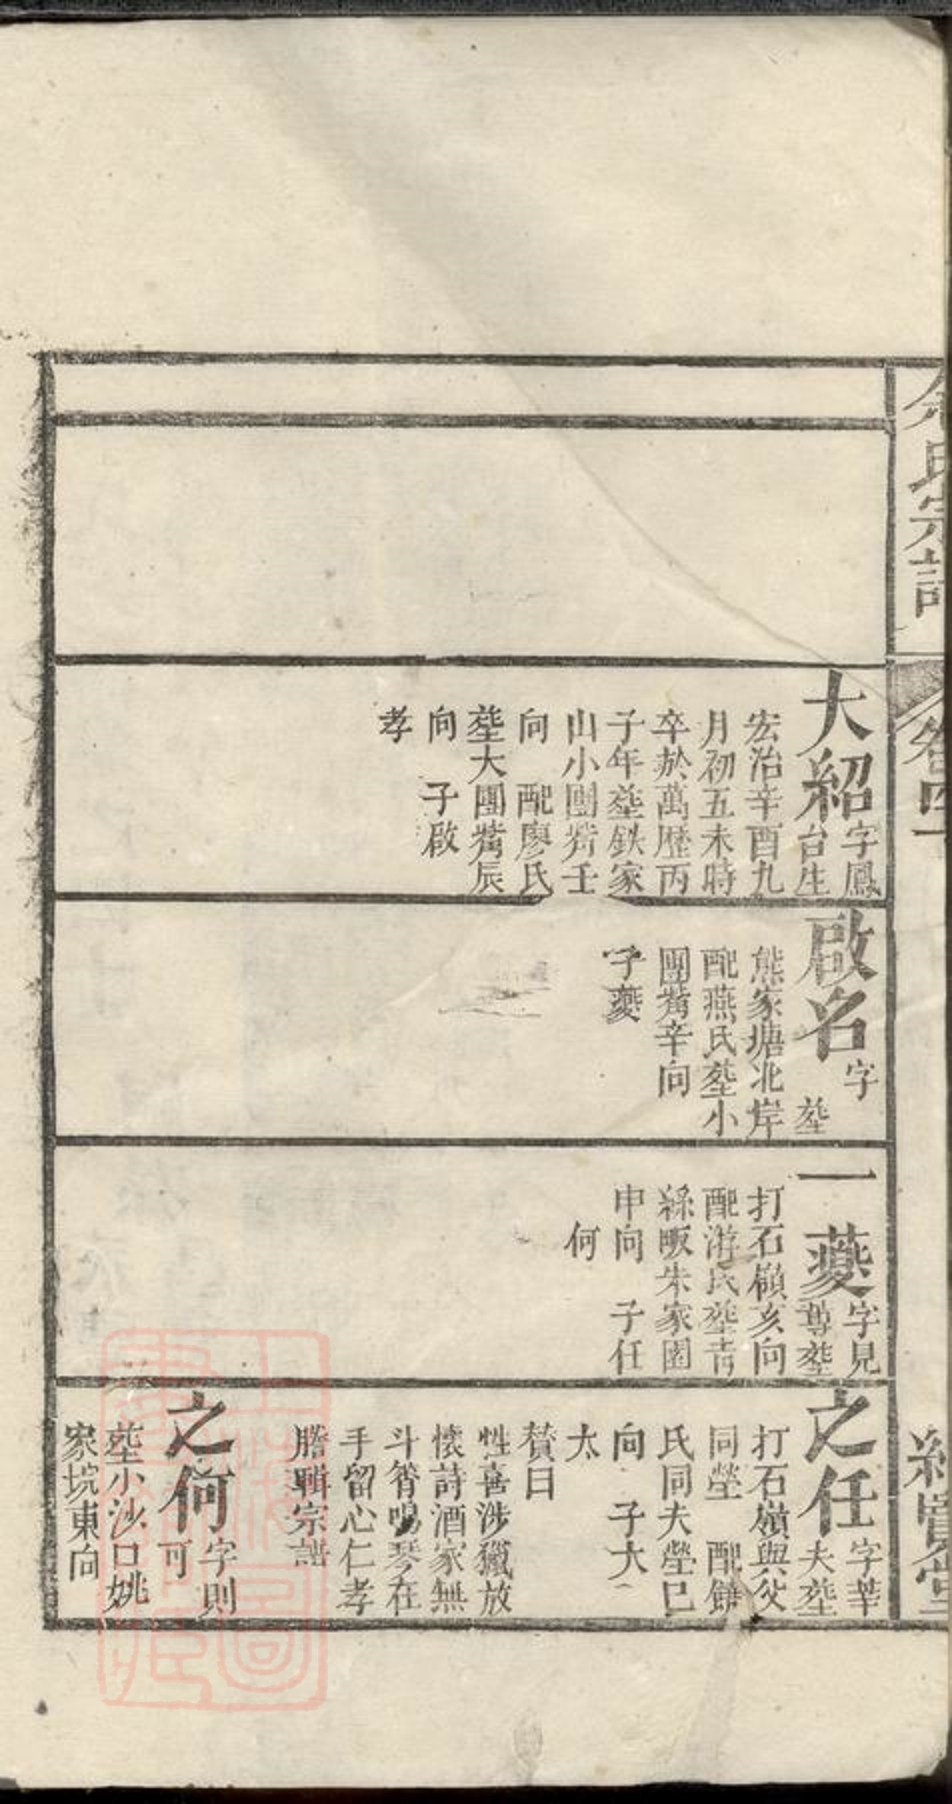 氏宗譜
卷四
大紹字鳳
台生
宏治辛酉九
月初五未時
卒於萬歷丙
子年塟鉄家
山小團嘴壬
向 配廖氏
塟大團嘴辰
向 子啟
孝
啟名字
塟
熊家塘北岸
配燕氏塟小
團嘴辛向
子夔
一夔字見
尊塟
打石嶺亥向
配游氏塟青
綠畈朱家園
申向 子任
何
之任字莘
夫塟
打石嶺與父
同塋 配
氏同夫塋巳
向 子大
太
贊曰
性喜涉獵放
懷詩酒家無
斗筲鳴琴在
手留心仁孝
謄輯宗譜
之何字則
可
塟小沙口姚
家垸東向